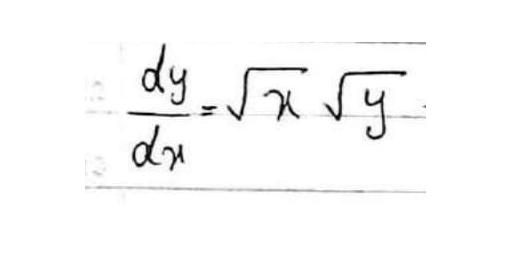 dy/dx = √x √y